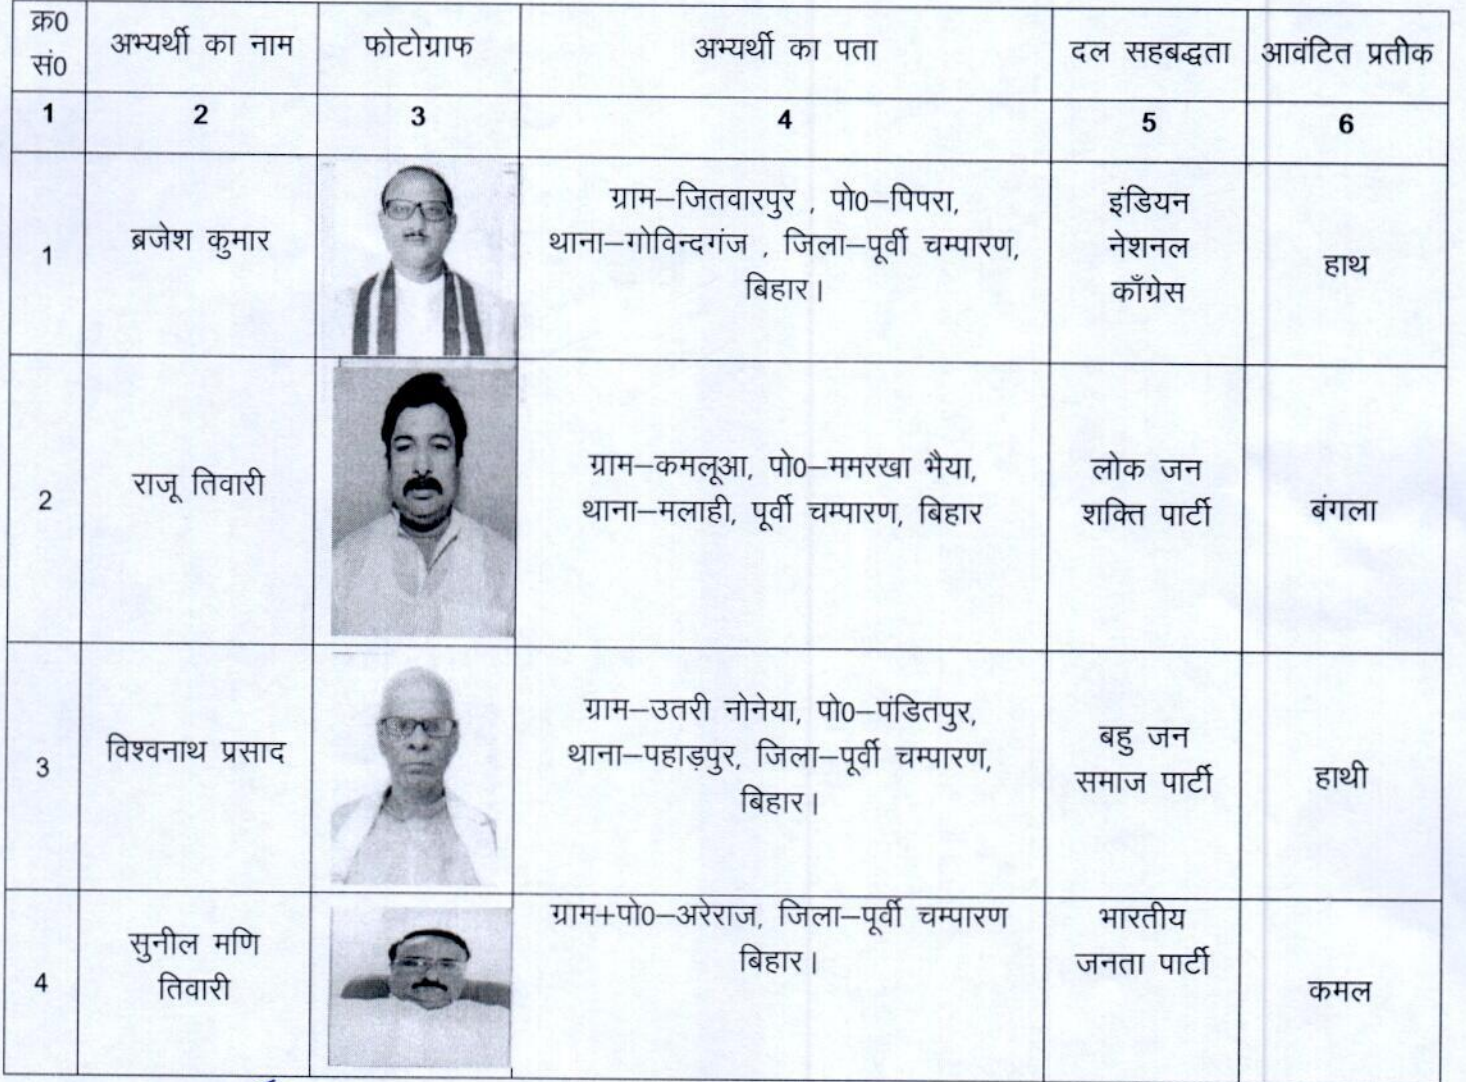 क्र0
सं0
अभ्यर्थी का नाम
फोटोग्राफ
अभ्यर्थी का पता
दल सहबद्धता
आवंटित प्रतीक
1
2
3
4
5
6
1
ब्रजेश कुमार
ग्राम–जितवारपुर , पो0–पिपरा,
थाना–गोविन्दगंज , जिला–पूर्वी चम्पारण,
बिहार।
इंडियन
नेशनल
काँग्रेस
हाथ
2
राजू तिवारी
ग्राम–कमलूआ, पो0–ममरखा भैया,
थाना–मलाही, पूर्वी चम्पारण, बिहार
लोक जन
शक्ति पार्टी
बंगला
3
विश्वनाथ प्रसाद
ग्राम–उतरी नोनेया, पो0–पंडितपुर,
थाना–पहाड़पुर, जिला–पूर्वी चम्पारण,
बिहार।
बहु जन
समाज पार्टी
हाथी
4
सुनील मणि
तिवारी
ग्राम+पो0–अरेराज, जिला–पूर्वी चम्पारण
बिहार।
भारतीय
जनता पार्टी
कमल